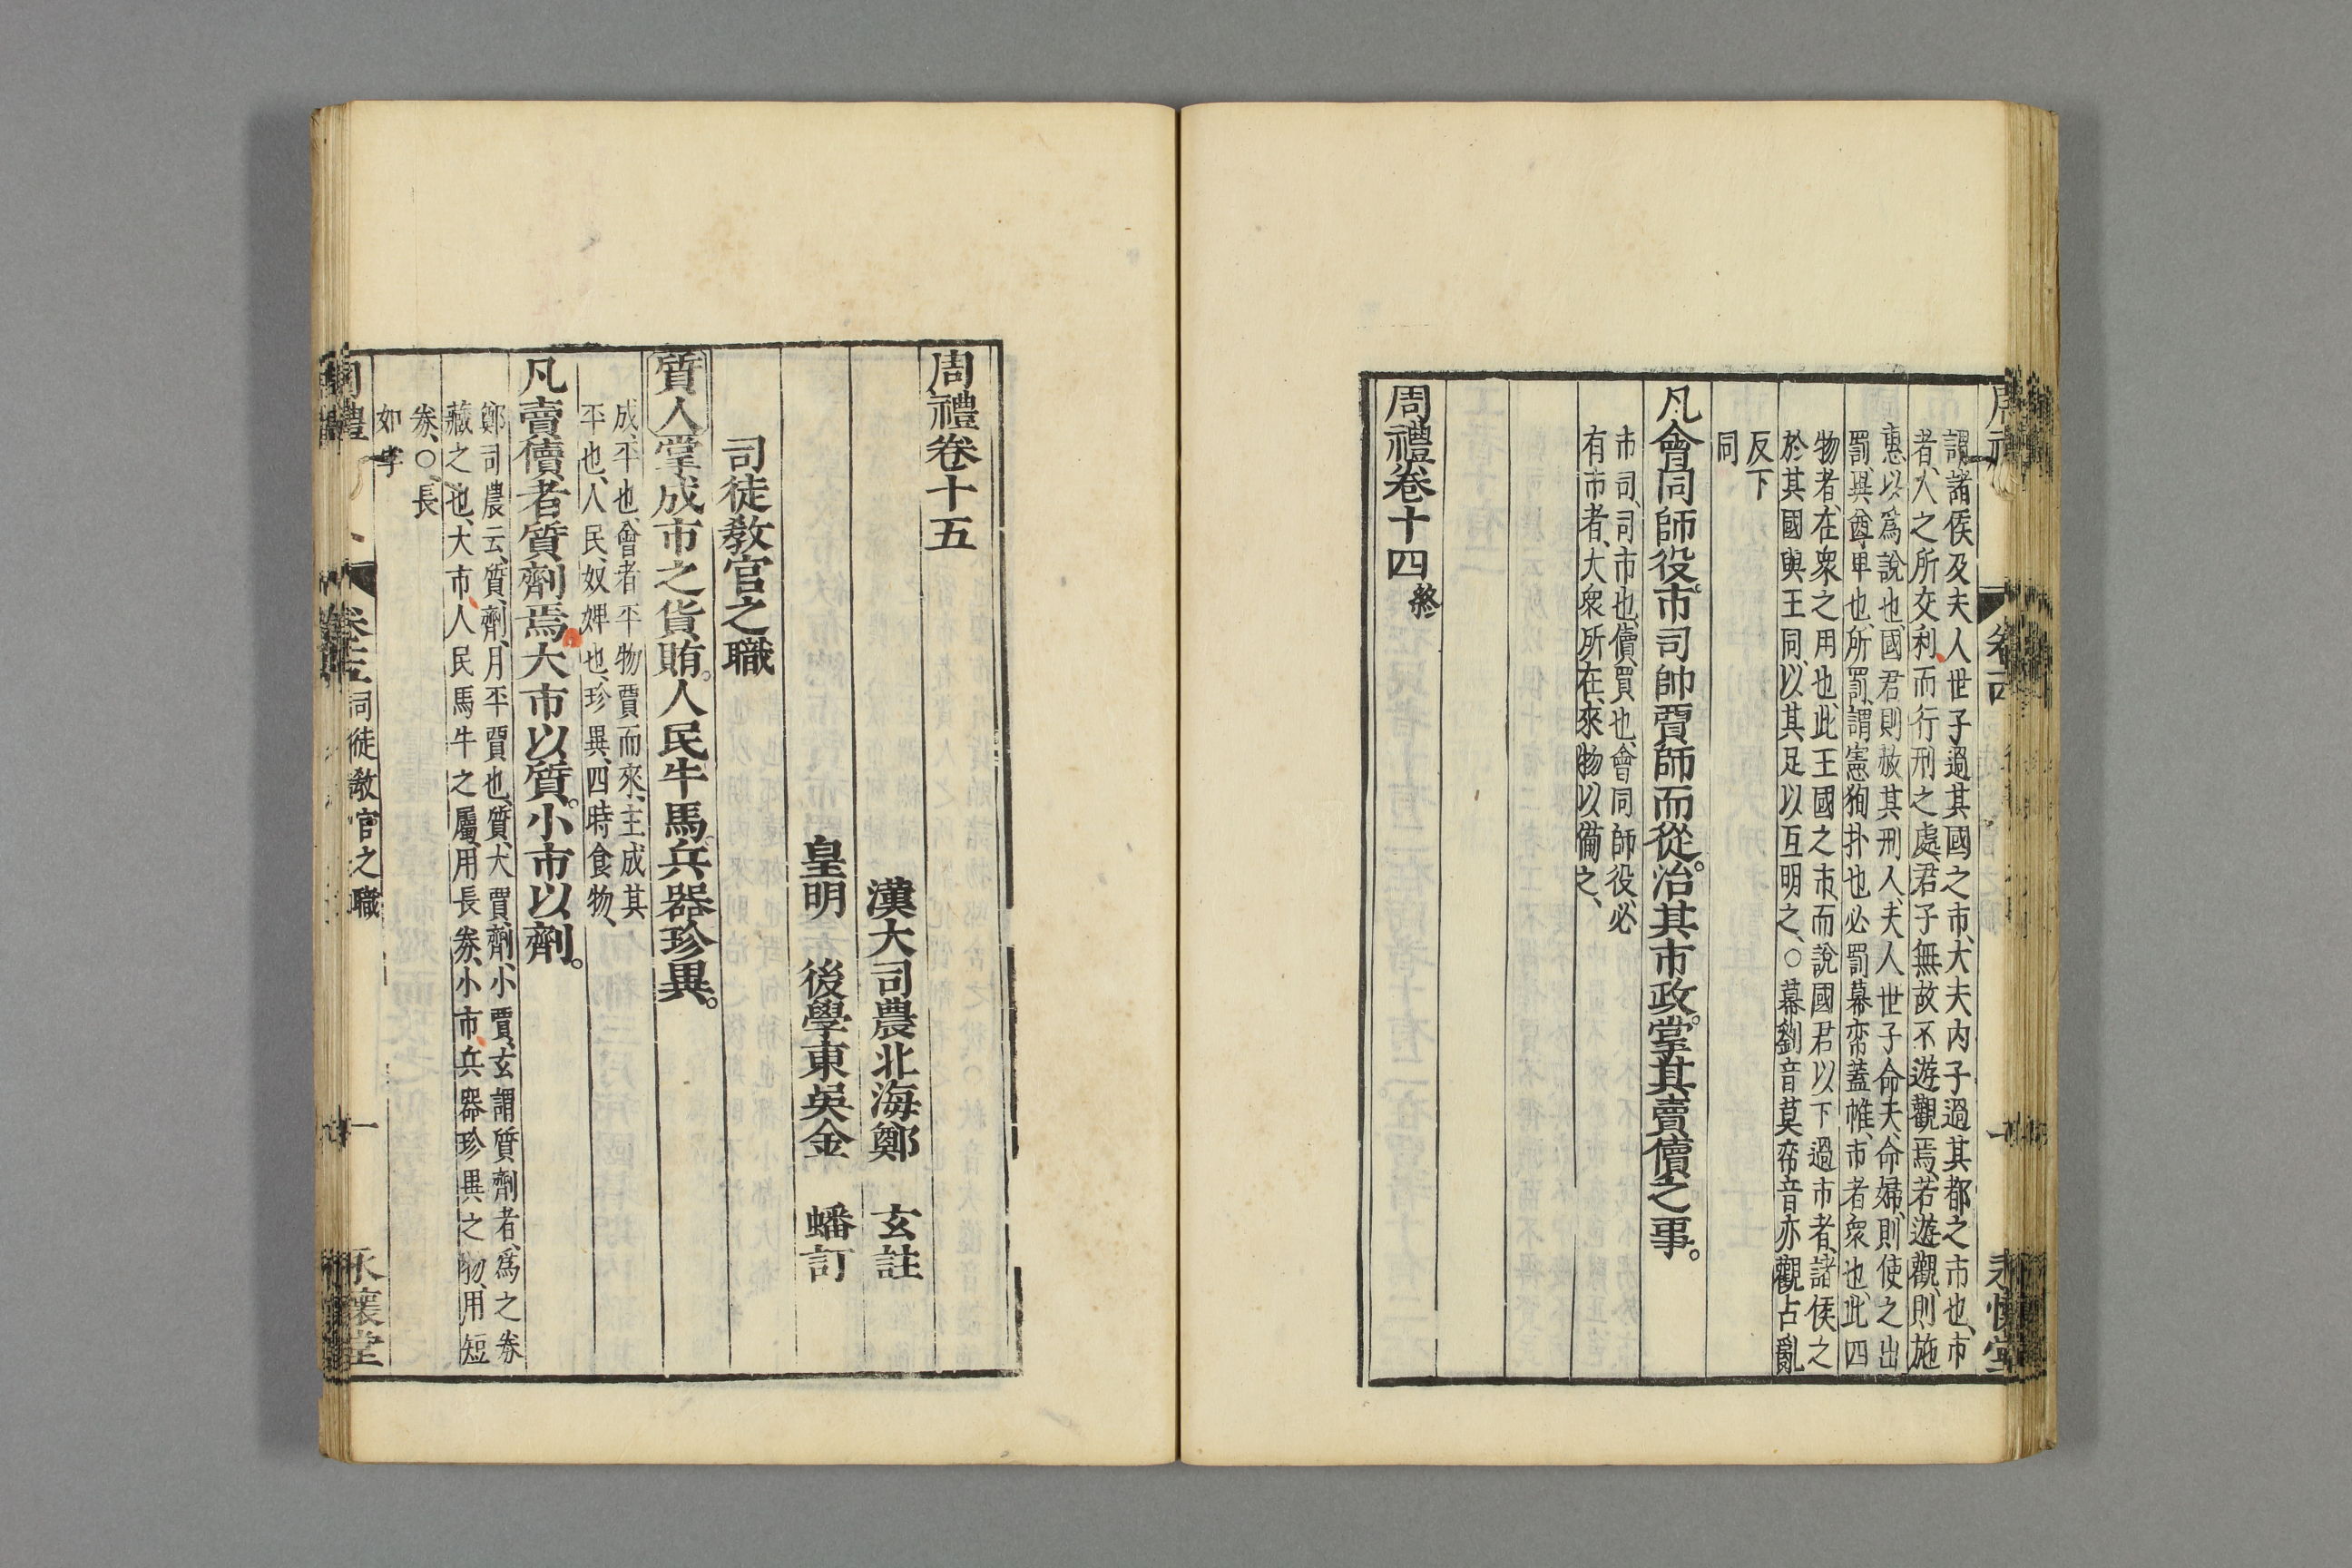 謂諸侯及夫人世子過其國之市、大夫內子過其都之市也、市
者、人之所交利、而行刑之處、君子無故不遊觀焉、若遊觀、則施
惠以爲說也、國君則赦其刑人、夫人世子命夫、命婦、則使之出
罰、異尊卑也、所罰、謂憲徇扑也、必罰幕帟蓋帷、市者衆也、此四
物者、在衆之用也、此王國之市、而說國君以下過市者、諸侯之
於其國與王同、以其足以互明之、○幕劉音莫帟音亦觀占亂
反下
同
凡會同師役。市司帥賈師而從。治其市政。掌其賣儥之事。
市司、司市也、儥、買也、會同師役、必
有市者、大衆所在、來物以備之、
周禮卷十四終
周禮卷十五
漢大司農北海鄭 玄註
皇明 後學東吳金 蟠訂
司徒敎官之職
質人掌成市之貨賄。人民牛馬。兵器珍異。
成、平也、會者平物賈而來、主成其
平也、人民、奴婢也、珍異、四時食物、
凡賣儥者質劑焉。大市以質。小市以劑。
鄭司農云、質劑、月平賈也、質、大賈、劑、小賈、玄謂質劑者、爲之券
藏之也、大市、人民馬牛之屬、用長券、小市、兵器珍異之物、用短
券、○長
如字
周禮 卷十五 司徒敎官之職 一 永懷堂